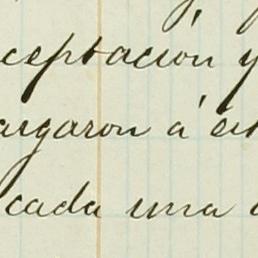 ceptación y
argaron á es
cada una